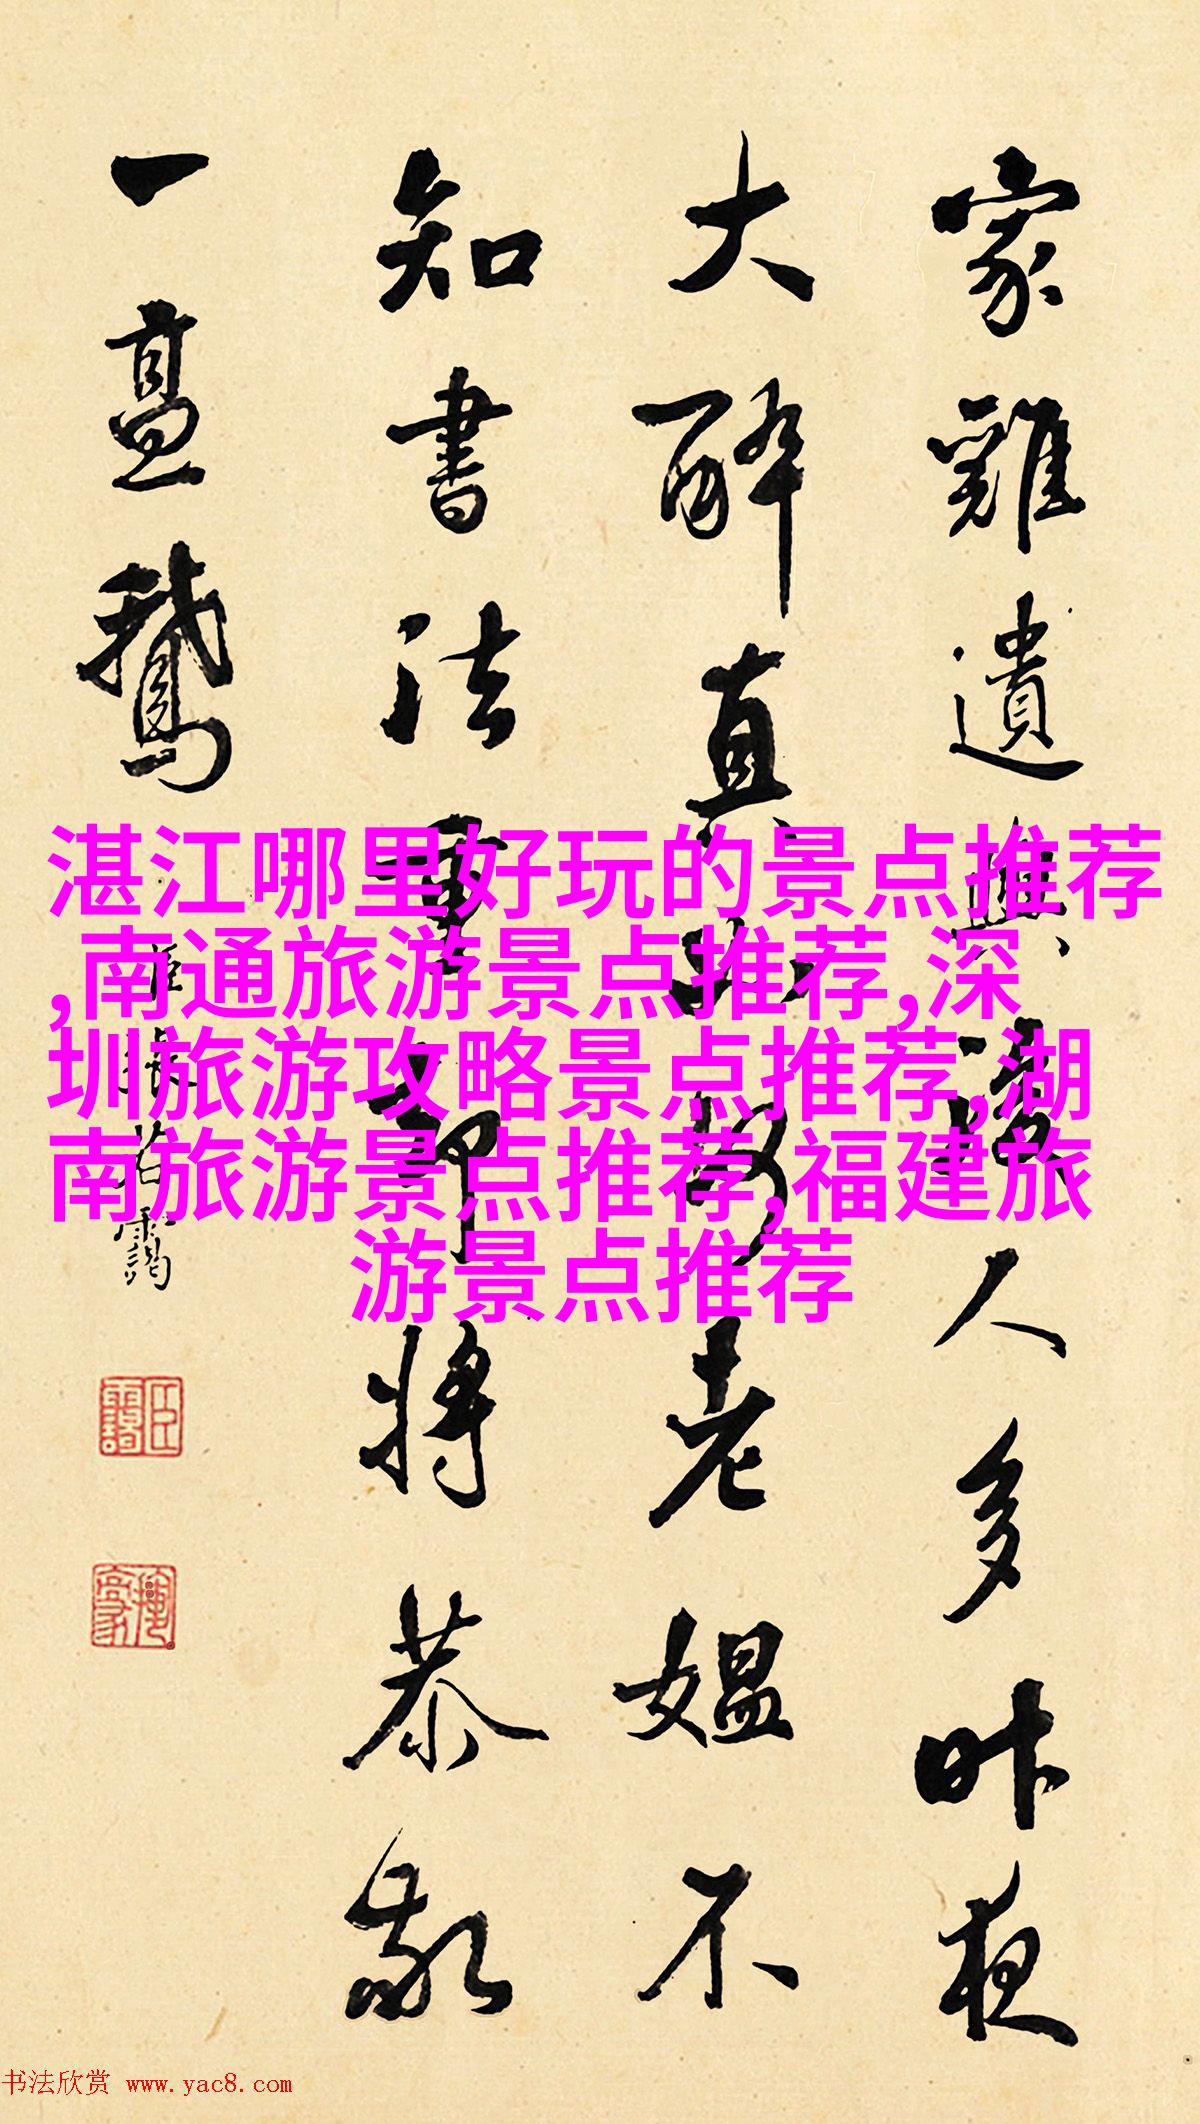 家雞遺與人多昨夜
大醉真老媼不
知書法將恭敬
一鵝
臣張若靄
湛江哪里好玩的景点推荐
,南通旅游景点推荐,深
圳旅游攻略景点推荐,湖
南旅游景点推荐,福建旅
游景点推荐
书法欣赏 www.yac8.com